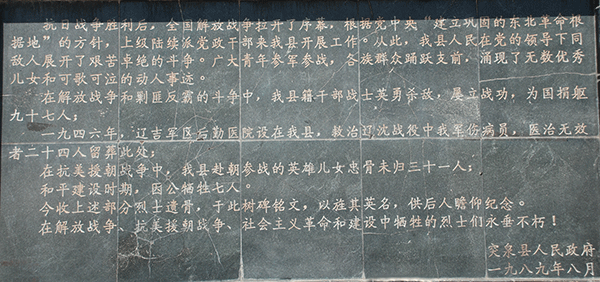 抗日战争胜利后，全国解放战争拉开了序幕，根据党中央“建立巩固的东北革命根
据地”的方针，上级陆续派党政干部来我县开展工作。从此，我县人民在党的领导下同
敌人展开了艰苦卓绝的斗争。广大青年参军参战，各族群众踊跃支前，涌现了无数优秀
儿女和可歌可泣的动人事迹。
在解放战争和剿匪反霸的斗争中，我县籍干部战士英勇杀敌，屡立战功，为国捐躯
九十七人；
一九四六年，辽吉军区后勤医院设在我县，救治辽沈战役中我军伤病员，医治无效
者二十四人留葬此处；
在抗美援朝战争中，我县赴朝参战的英雄儿女忠骨未归三十一人；
和平建设时期，因公牺牲七人。
今收上述部分烈士遗骨，于此树碑铭文，以旌其英名，供后人瞻仰纪念。
在解放战争、抗美援朝战争、社会主义革命和建设中牺牲的烈士们永垂不朽！
突泉县人民政府
一九八九年八月